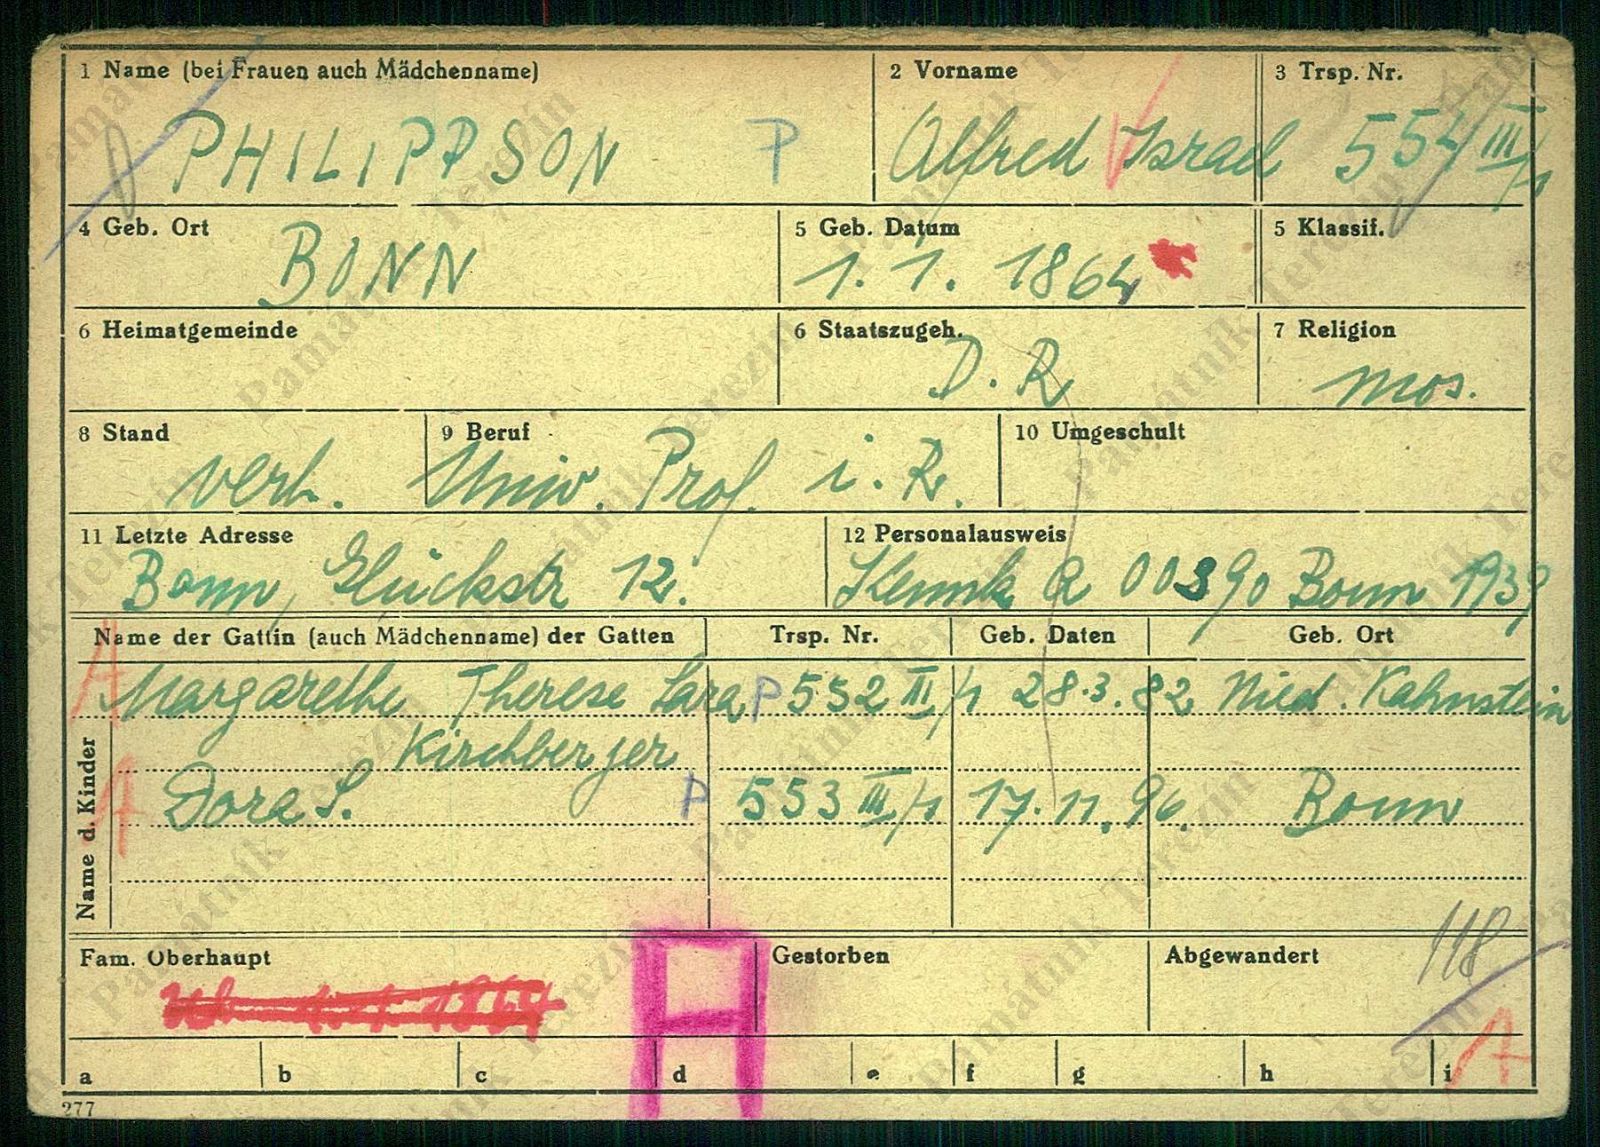 1 Name (bei Frauen auch Mädchenname) 2 Vorname 3 Trsp. Nr.
PHILIPPSON P Alfred Israel 554 III/1
4 Geb. Ort 5 Geb. Datum 5 Klassif.
BONN 1. 1. 1864
6 Heimatgemeinde 6 Staatszugeh. 7 Religion
D. R. mos.
8 Stand 9 Beruf 10 Umgeschult
verh. Univ. Prof. i. R.
11 Letzte Adresse 12 Personalausweis
Bonn, Glückstr 12. Kennk A 00390 Bonn 1939
Name der Gattin (auch Mädchenname) der Gatten Trsp. Nr. Geb. Daten Geb. Ort
A Margarethe Therese Sara P 552 III/1 28.3.82 Nied. Lahnstein
Kirchberger
Name d. Kinder
A Dora S. P 553 III/1 17.11.96. Bonn
Fam. Oberhaupt Gestorben Abgewandert
118
A
A
a b c d e f g h i
277
Památník Terezín